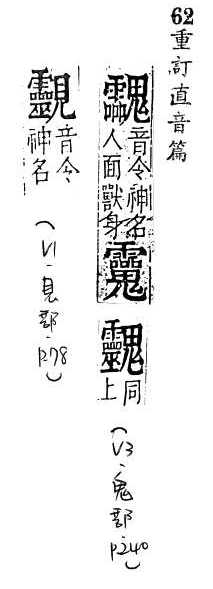 62重訂直音篇
䰱音令神名人面獸身
同上
(V3、鬼部、p.240)
音令神名
(V1、見部、p.78)